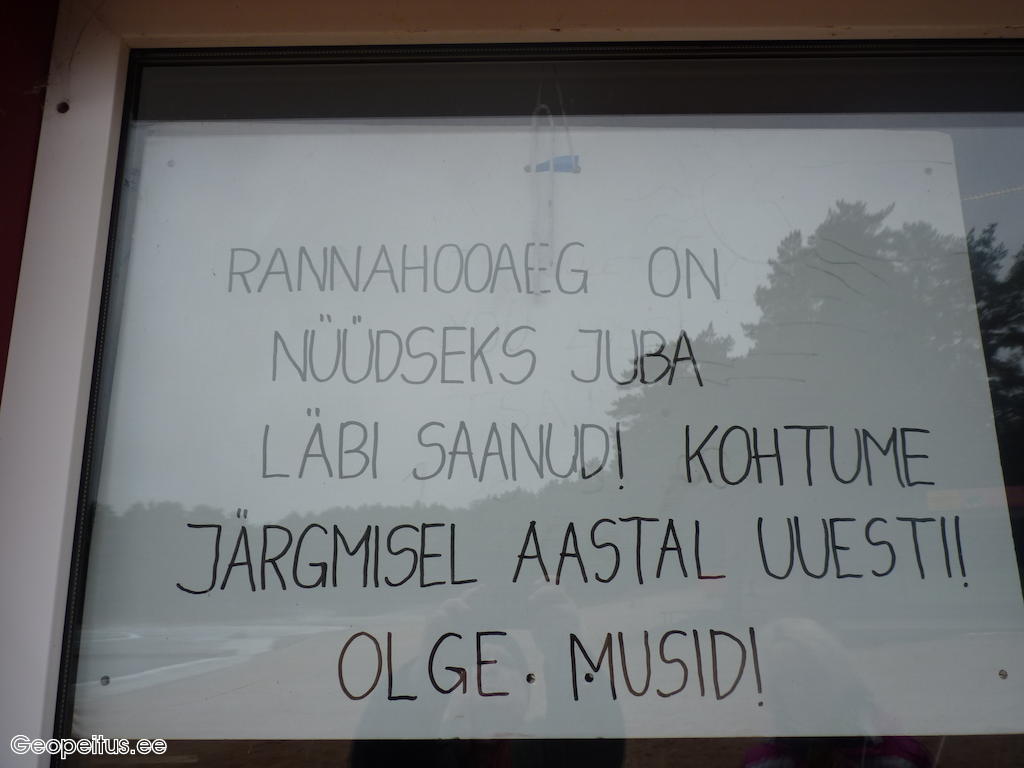 RANNAHOOAEG ON
NÜÜDSEKS JUBA
LÄBI SAANUD! KOHTUME
JÄRGMISEL AASTAL UUESTI!
OLGE MUSID!
Geopeitus.ee